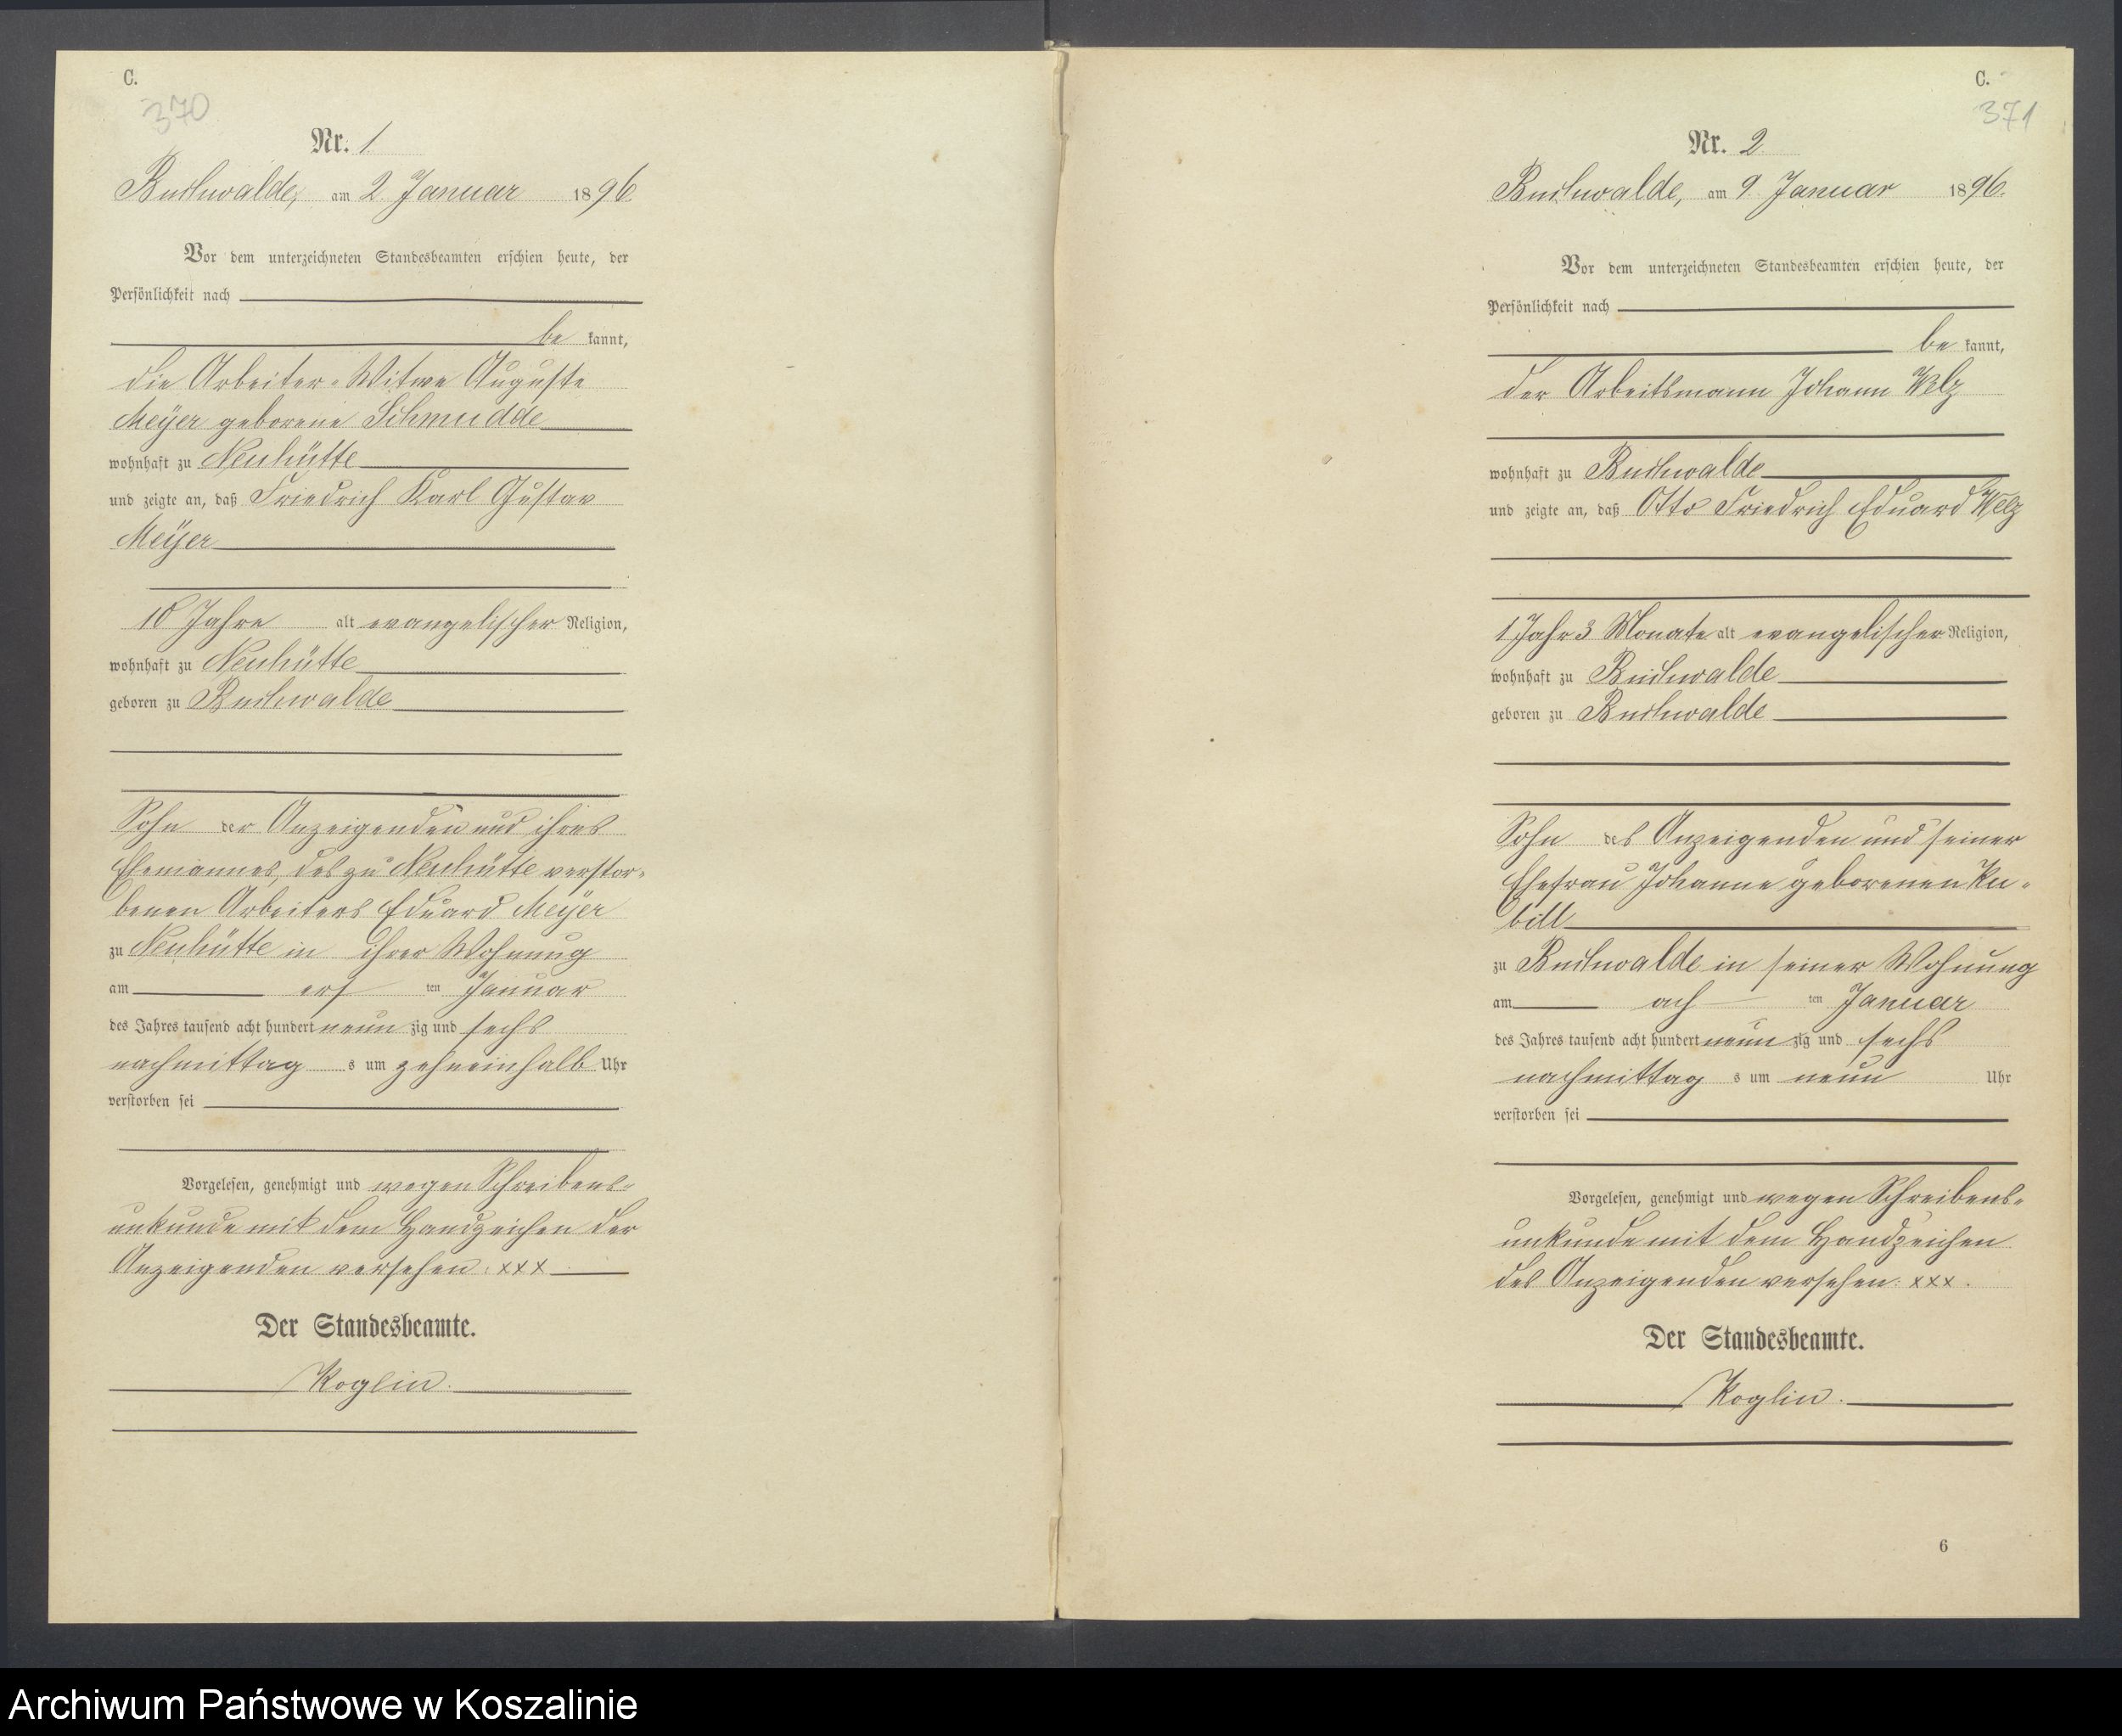 C.
370
Nr. 1
Buchwalde, am 2 Januar 1896.
Vor dem unterzeichneten Standesbeamten erschien heute, der
Persönlichkeit nach
be kannt,
die Arbeiter-Witwe Auguste
Meÿer geborene Schmudde
wohnhaft zu Neuhütte
und zeigte an, daß Friedrich Karl Gustav
Meÿer
10 Jahre alt evangelischer Religion,
wohnhaft zu Neuhütte
geboren zu Buchwalde
Sohn der Anzeigenden und ihres
Ehemannes, des zu Neuhütte verstor-
benen Arbeiters Eduard Meÿer
zu Neuhütte in ihrer Wohnung
am ers ten Januar
des Jahres tausend acht hundert neun zig und sechs
nachmittag s um zehneinhalb Uhr
verstorben sei
Vorgelesen, genehmigt und wegen Schreibens-
unkunde mit dem Handzeichen der
Anzeigenden versehen: xxx
Der Standesbeamte.
Koglin.
C.
371
Nr. 2
Buchwalde, am 9 Januar 1896.
Vor dem unterzeichneten Standesbeamten erschien heute, der
Persönlichkeit nach
be kannt,
der Arbeitsmann Johann Welz
wohnhaft zu Buchwalde
und zeigte an, daß Otto Friedrich Eduard Welz
1 Jahr 3 Monate alt evangelischer Religion,
wohnhaft zu Buchwalde
geboren zu Buchwalde
Sohn des Anzeigenden und seiner
Ehefrau Johanne geborenen Ku-
bill
zu Buchwalde in seiner Wohnung
am ach ten Januar
des Jahres tausend acht hundert neun zig und sechs
nachmittag s um neun Uhr
verstorben sei
Vorgelesen, genehmigt und wegen Schreibens-
unkunde mit dem Handzeichen
des Anzeigenden versehen: xxx.
Der Standesbeamte.
Koglin.
6
Archiwum Państwowe w Koszalinie